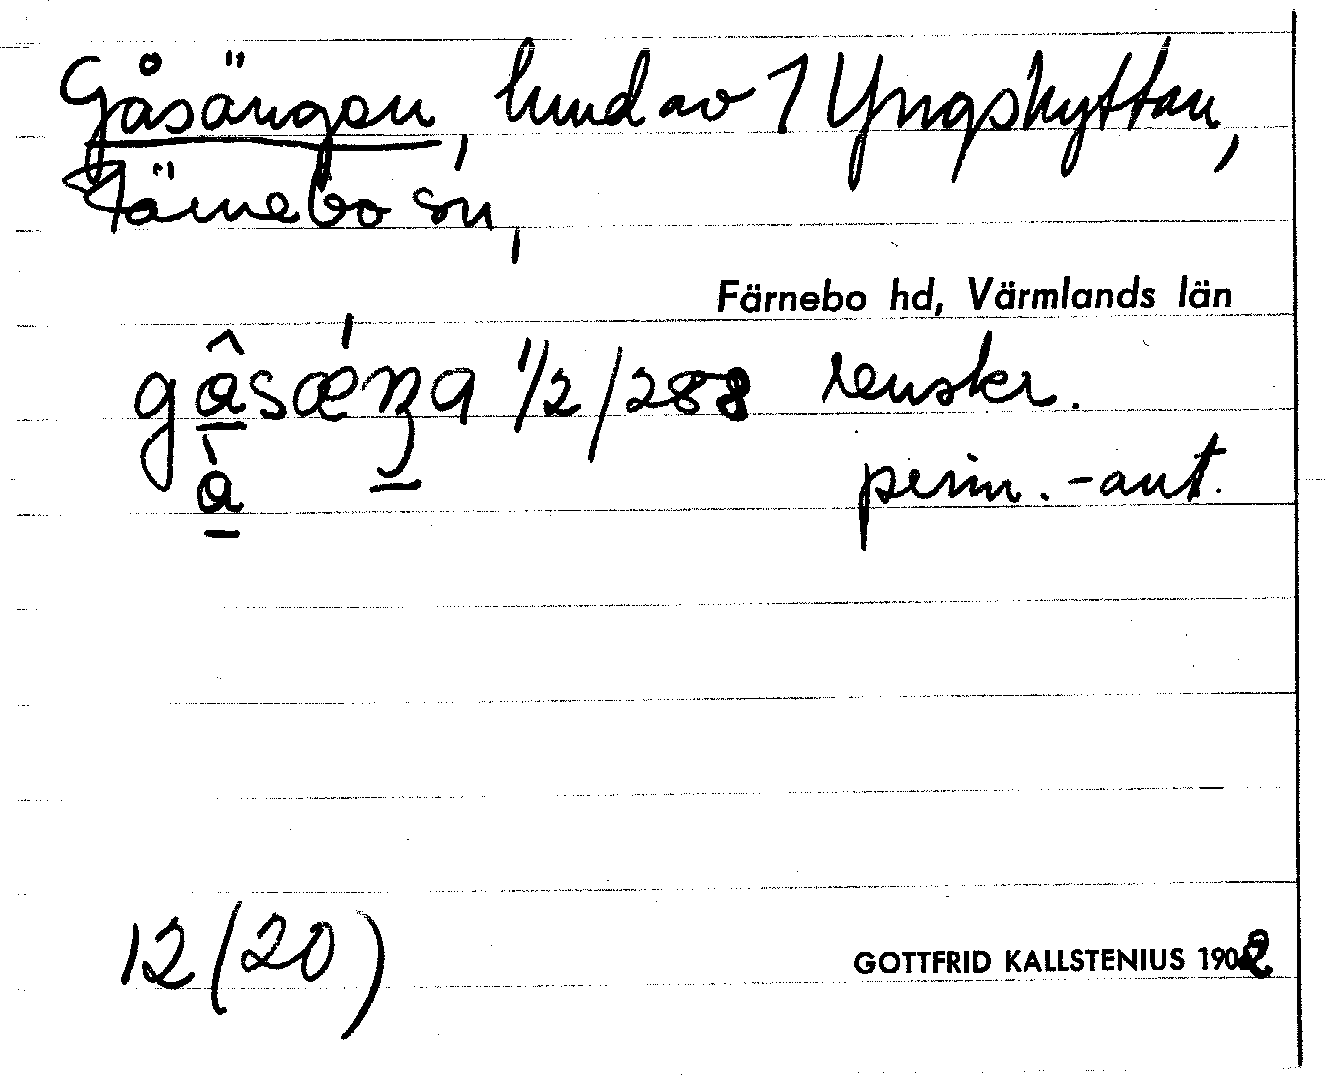 Gåsängen, lund av 1 Yngshyttan,
Färnebo sn,
Färnebo hd, Värmlands län
gâsǽŋa 1/2/288 renskr.
à
perm. -ant.
12(20)
GOTTFRID KALLSTENIUS 1902